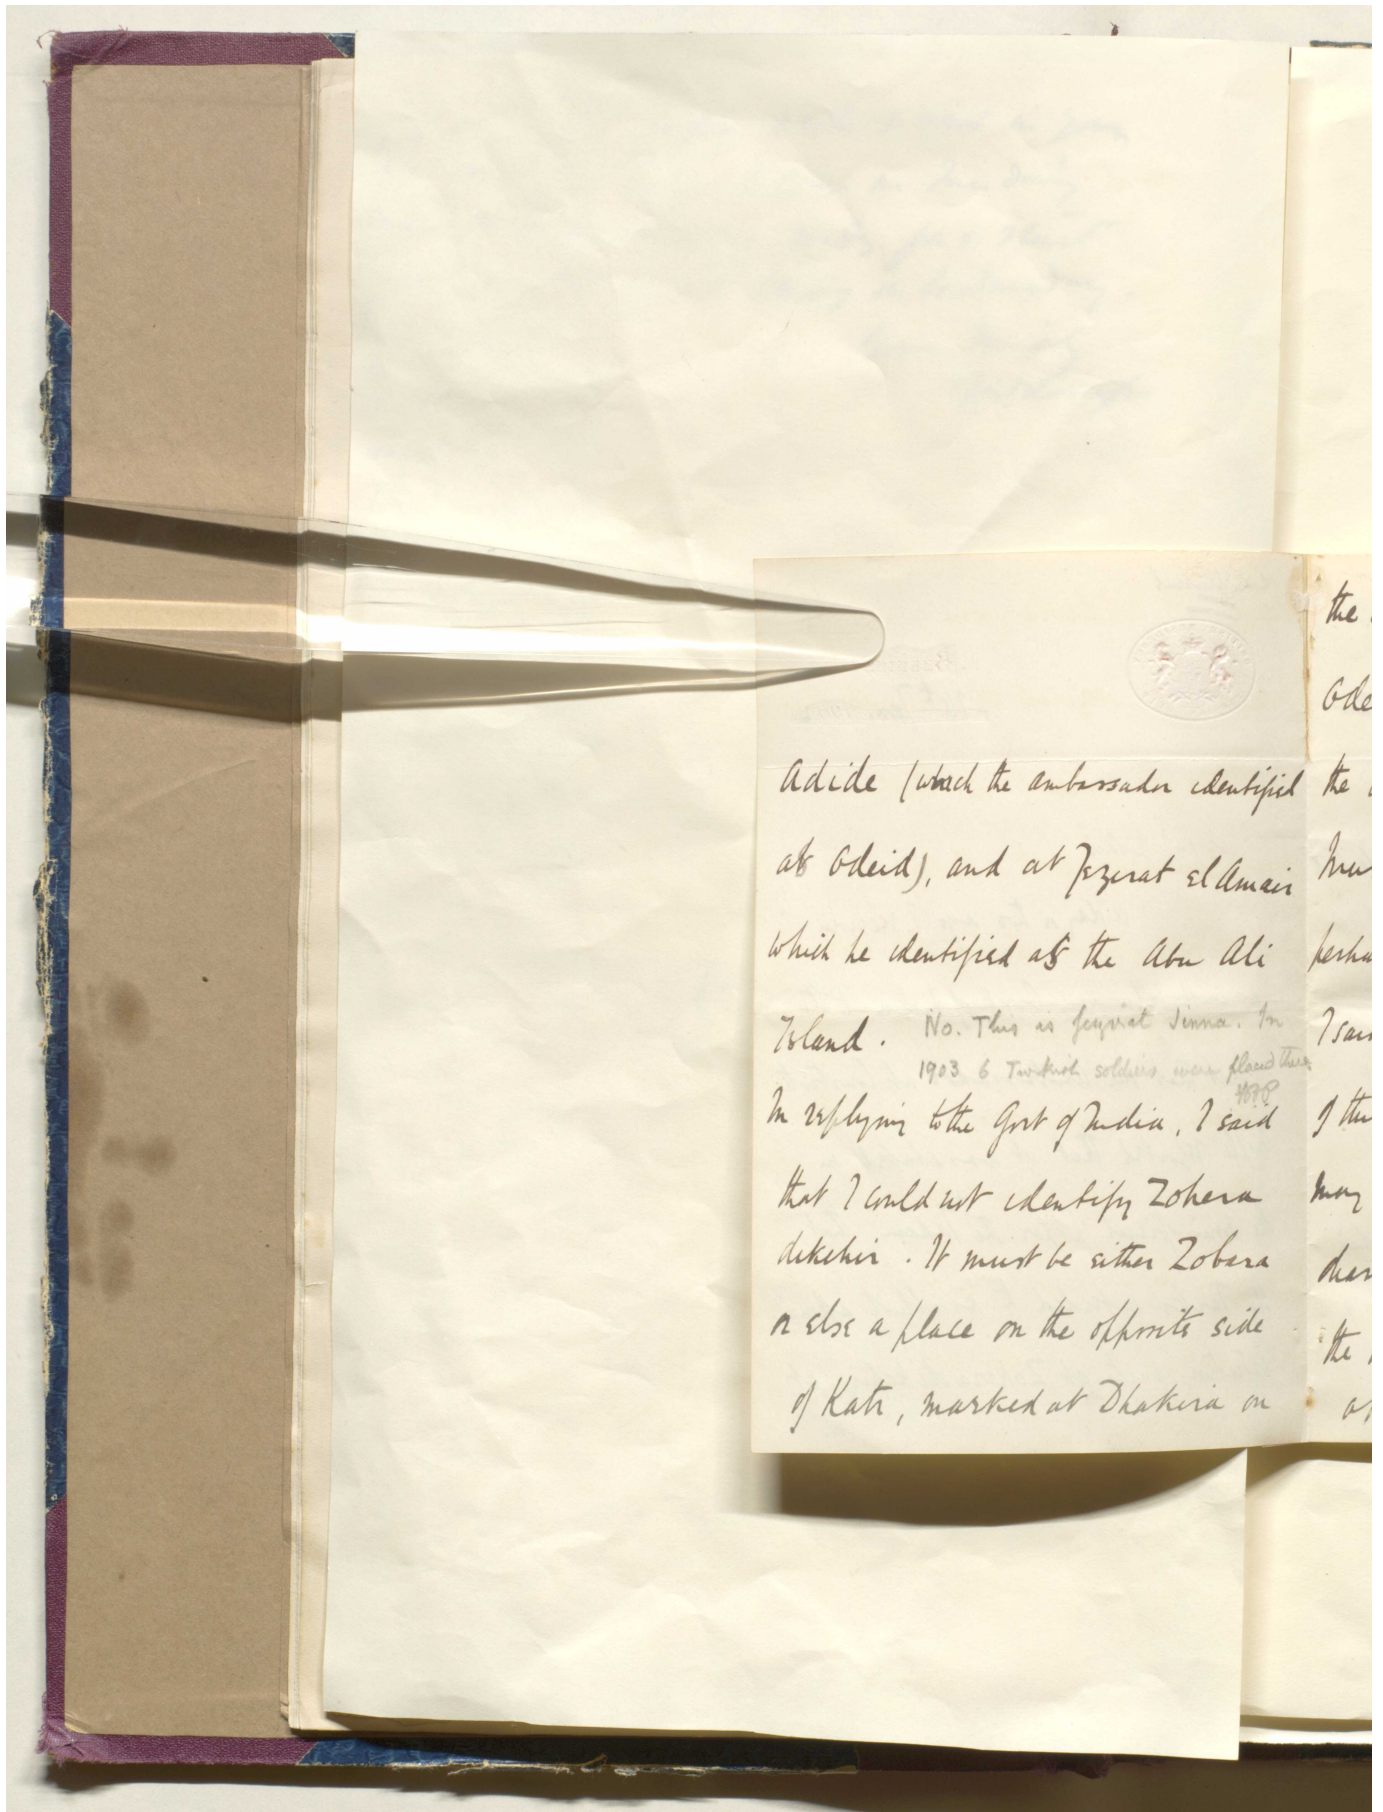 Adide (which the ambassador identified
as Odeid), and at Jezirat el Amair
which he identified as the Abu Ali
Island.
No. This is Jezirat Jinna. In
1903 6 Turkish soldiers were placed there.
In replying to the Govt of India, I said
that I could not identify Zohera
dikehir. It must be either Zobara
or else a place on the opposite side
of Katr, marked at Dhakira on
the
Ode
the
I sai
of the
may
the